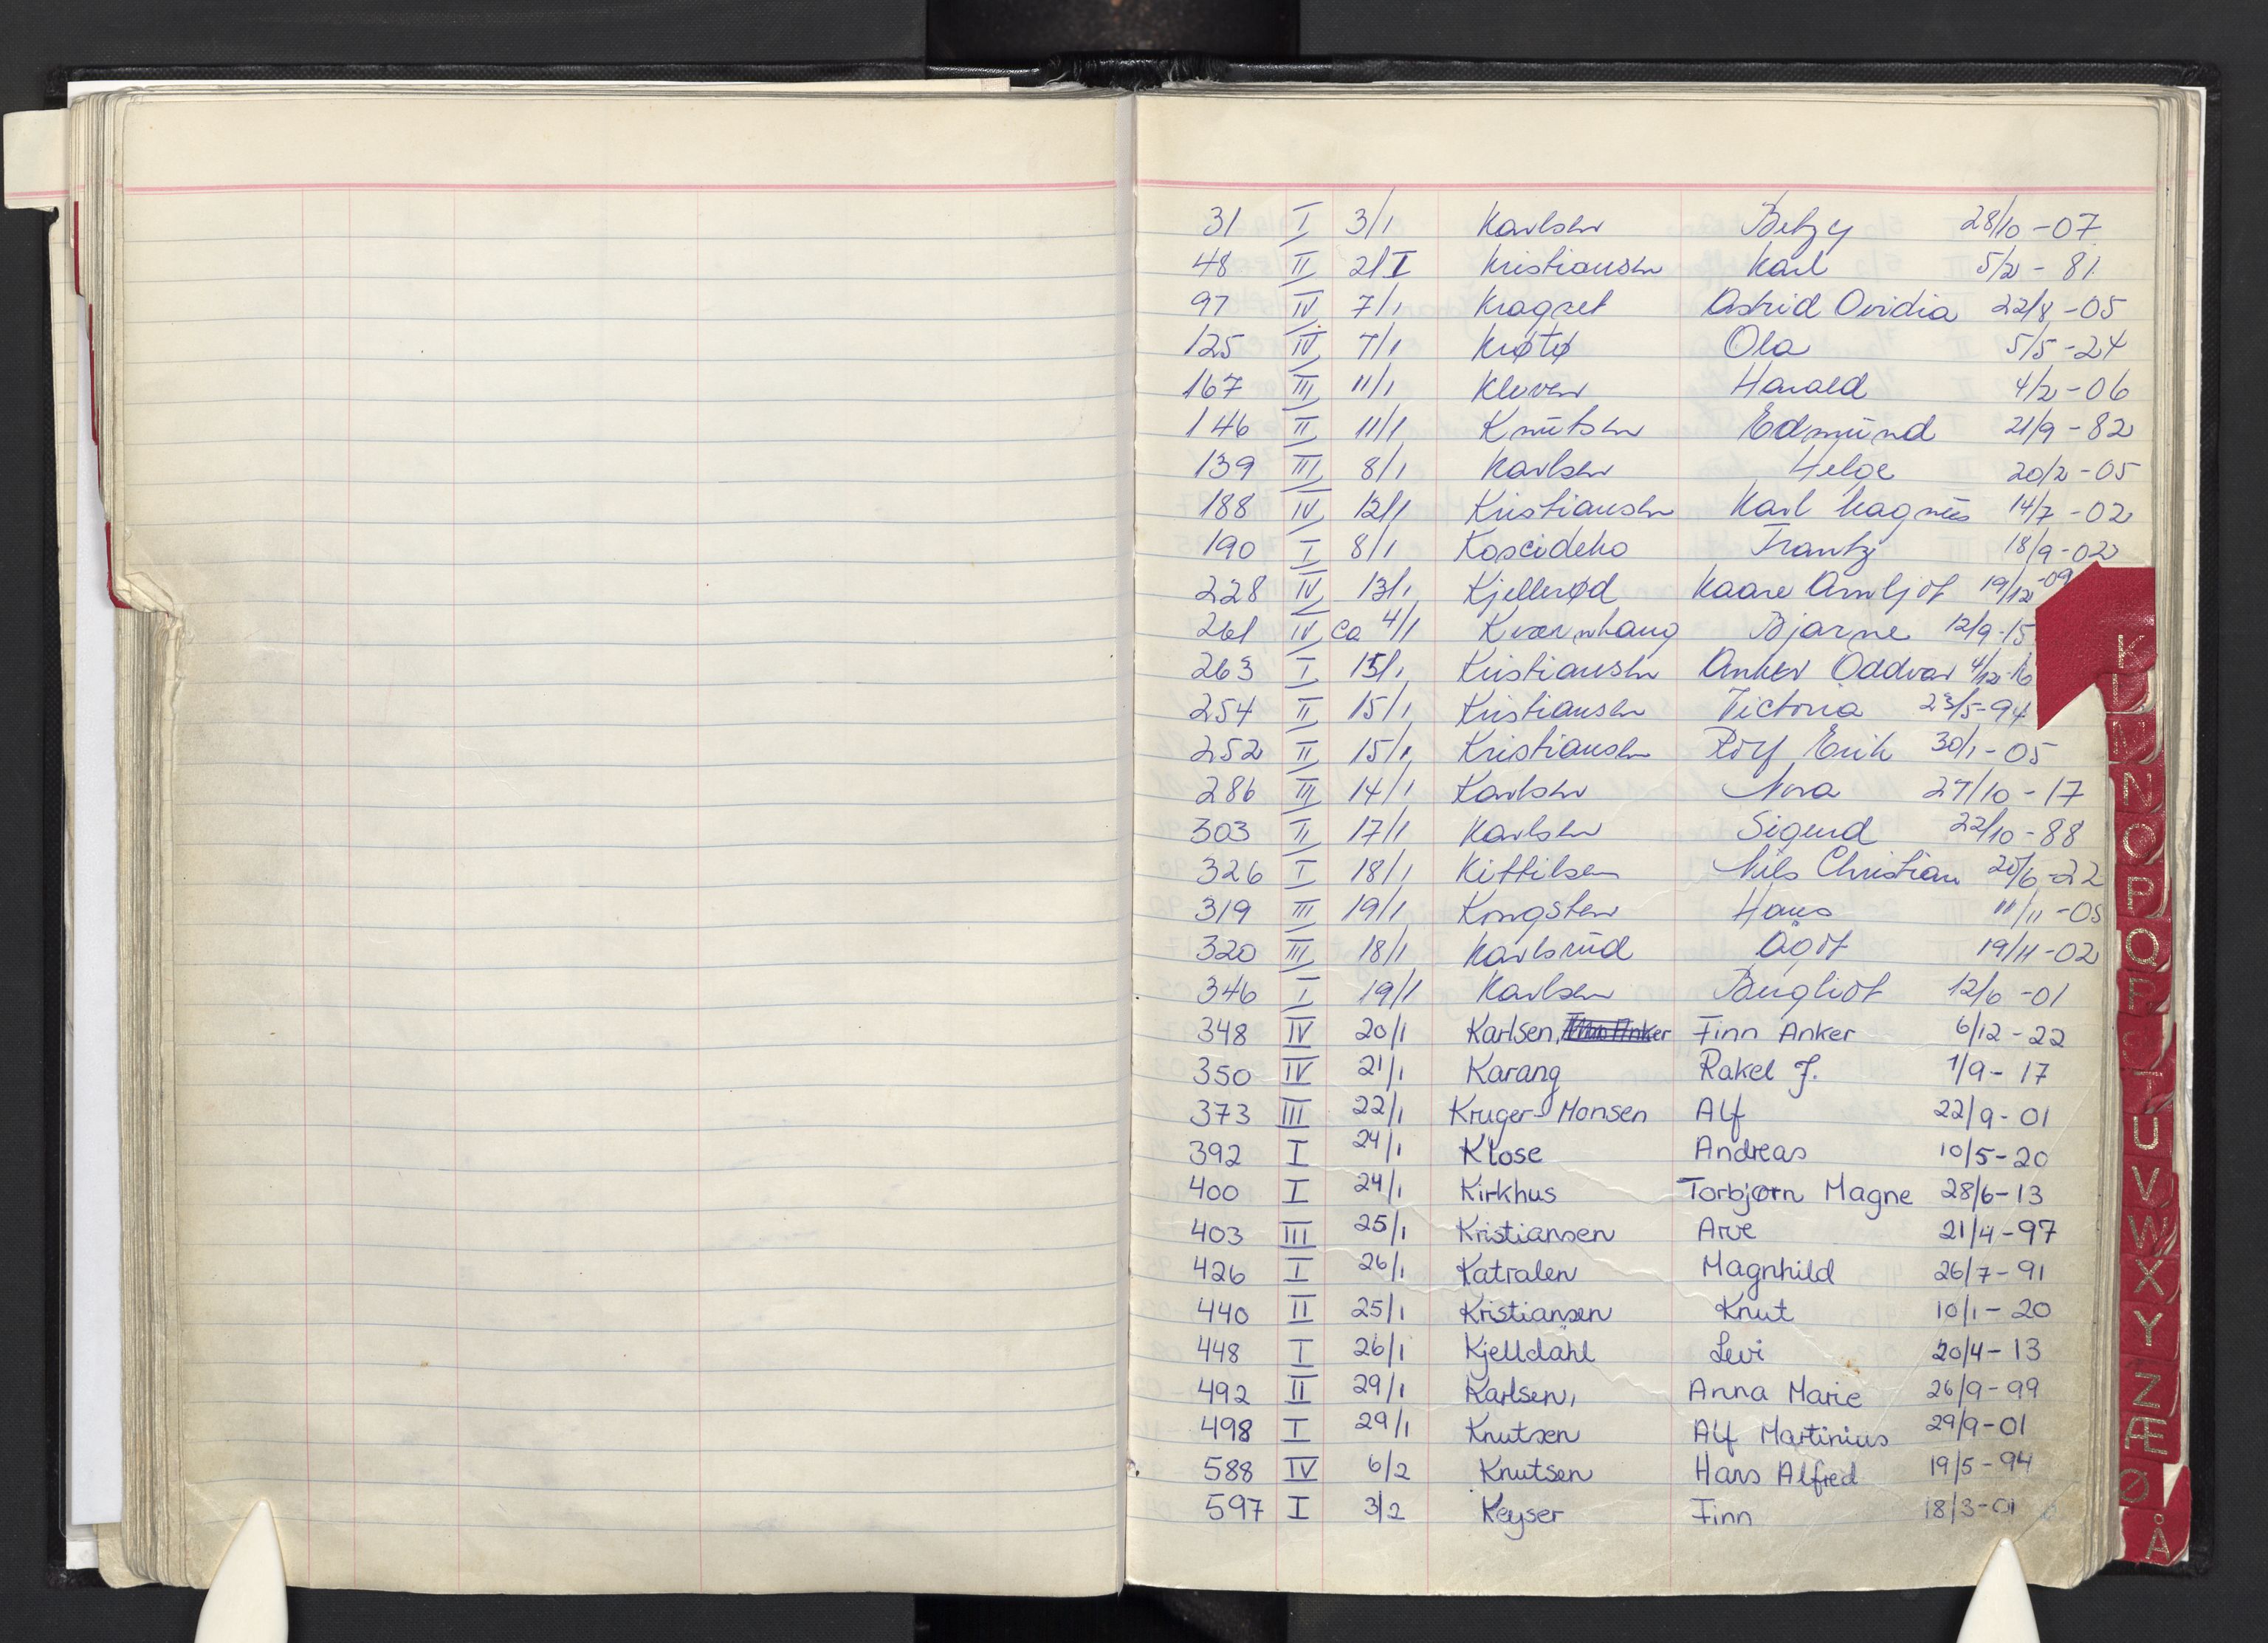 31 I 3/1 Karlsen Betzy 28/10 - 07
48 II 2/I Kristiansen Karl 5/2 - 81
97 IV 7/1 Kragset Astrid Ovidia 22/8 - 05
125 IV 7/1 Krøtø Ola 5/5 - 24
167 III 11/1 Kleven Harald 4/2 - 06
146 II 11/1 Knutsen Edmund 21/9 - 82
139 III 8/1 Karlsen Helge 20/2 - 05
188 IV 12/1 Kristiansen Karl Magnus 14/7 - 02
190 I 8/1 Koscideko Frantz 18/9 - 02
228 IV 13/1 Kjellerød Kaare Arnljot 19/12 - 09
261 IV ca 4/1 Kværnhaug Bjarne 12/9 - 15
263 I 15/1 Kristiansen Anker Oddvar 4/12 - 16
254 II 15/1 Kristiansen Victoria 23/5 - 94
252 II 15/1 Kristiansen Rolf Erik 30/1 - 05
286 III 14/1 Karlsen Nora 27/10 - 17
303 II 17/1 Karlsen Sigurd 22/10 - 88
326 I 18/1 Kittilsen Nils Christian 20/6 - 22
319 III 19/1 Kongsten Hans 11/11 - 05
320 III 18/1 Karlsrud Ågot 19/11 - 02
346 I 19/1 Karlsen Bergliot 12/6 - 01
348 IV 20/1 Karlsen, Finn Anker 6/12 - 22
350 IV 21/1 Karang Rakel J. 1/9 - 17
373 III 22/1 Kruger-Monsen Alf 22/9 - 01
392 I 24/1 Klose Andreas 10/5 - 20
400 I 24/1 Kirkhus Torbjørn Magne 28/6 - 13
403 III 25/1 Kristiansen Arve 21/4 - 97
426 I 26/1 Katralen Magnhild 26/7 - 91
440 II 25/1 Kristiansen Knut 10/1 - 20
448 I 26/1 Kjelldahl Levi 20/4 - 13
492 II 29/1 Karlsen, Anna Marie 26/9 - 99
498 I 29/1 Knutsen Alf Martinius 29/9 - 01
588 IV 6/2 Knutsen Hans Alfred 19/5 - 94
597 I 3/2 Keyser Finn 18/3 - 01
K
N
O
P
Q
R
T
U
V
W
X
Y
Z
Æ
Ø
Å